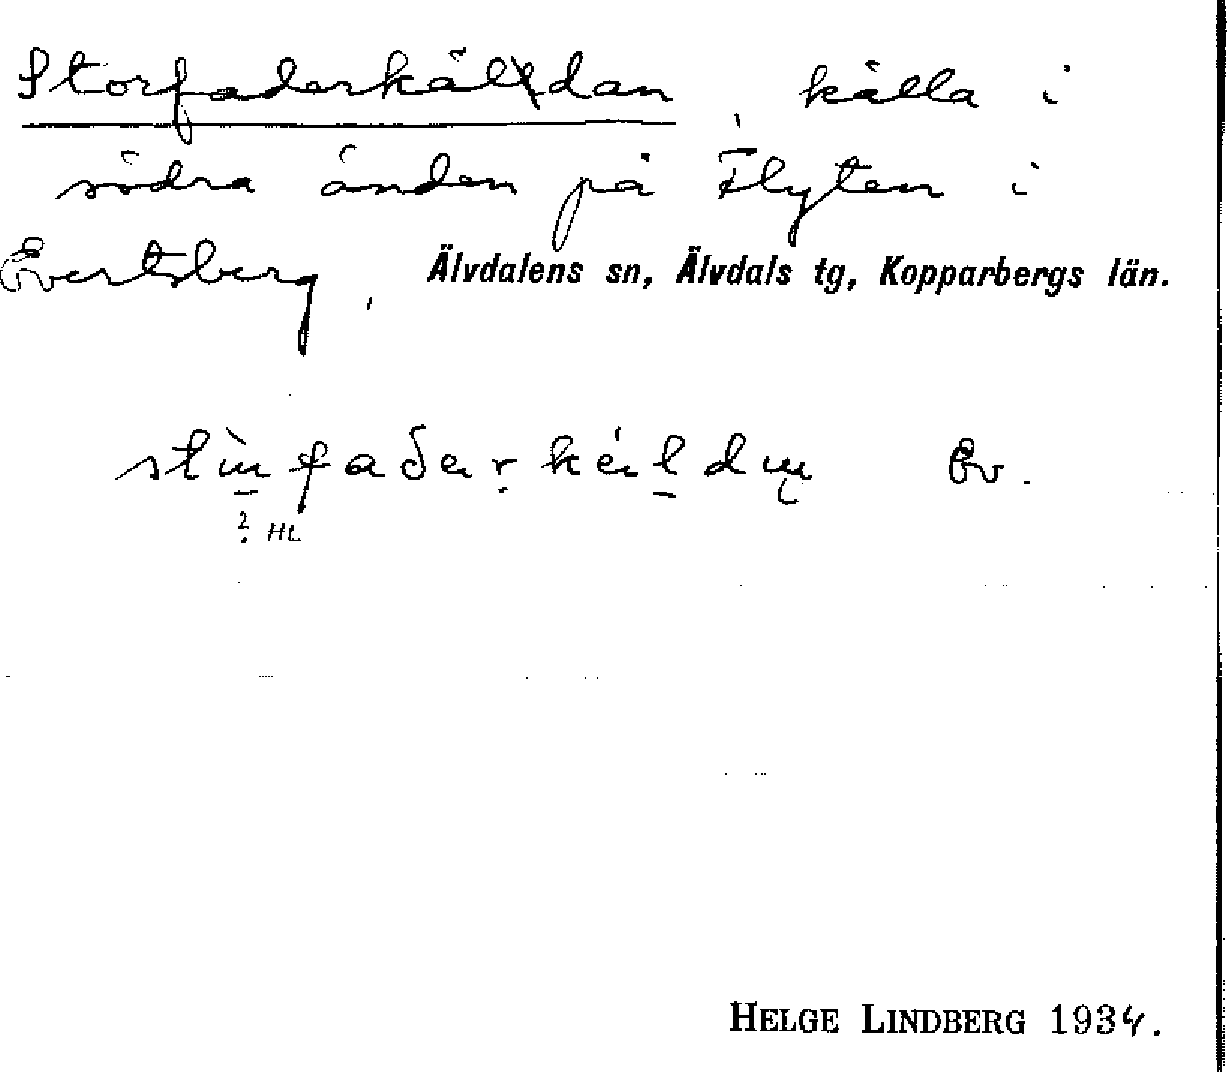 Storfaderkäldan, källa i
södra änden på Flyten i
Evertsberg, Älvdalens sn, Älvdals tg, Kopparbergs län.
Ev.
? HL
HELGE LINDBERG 1934.